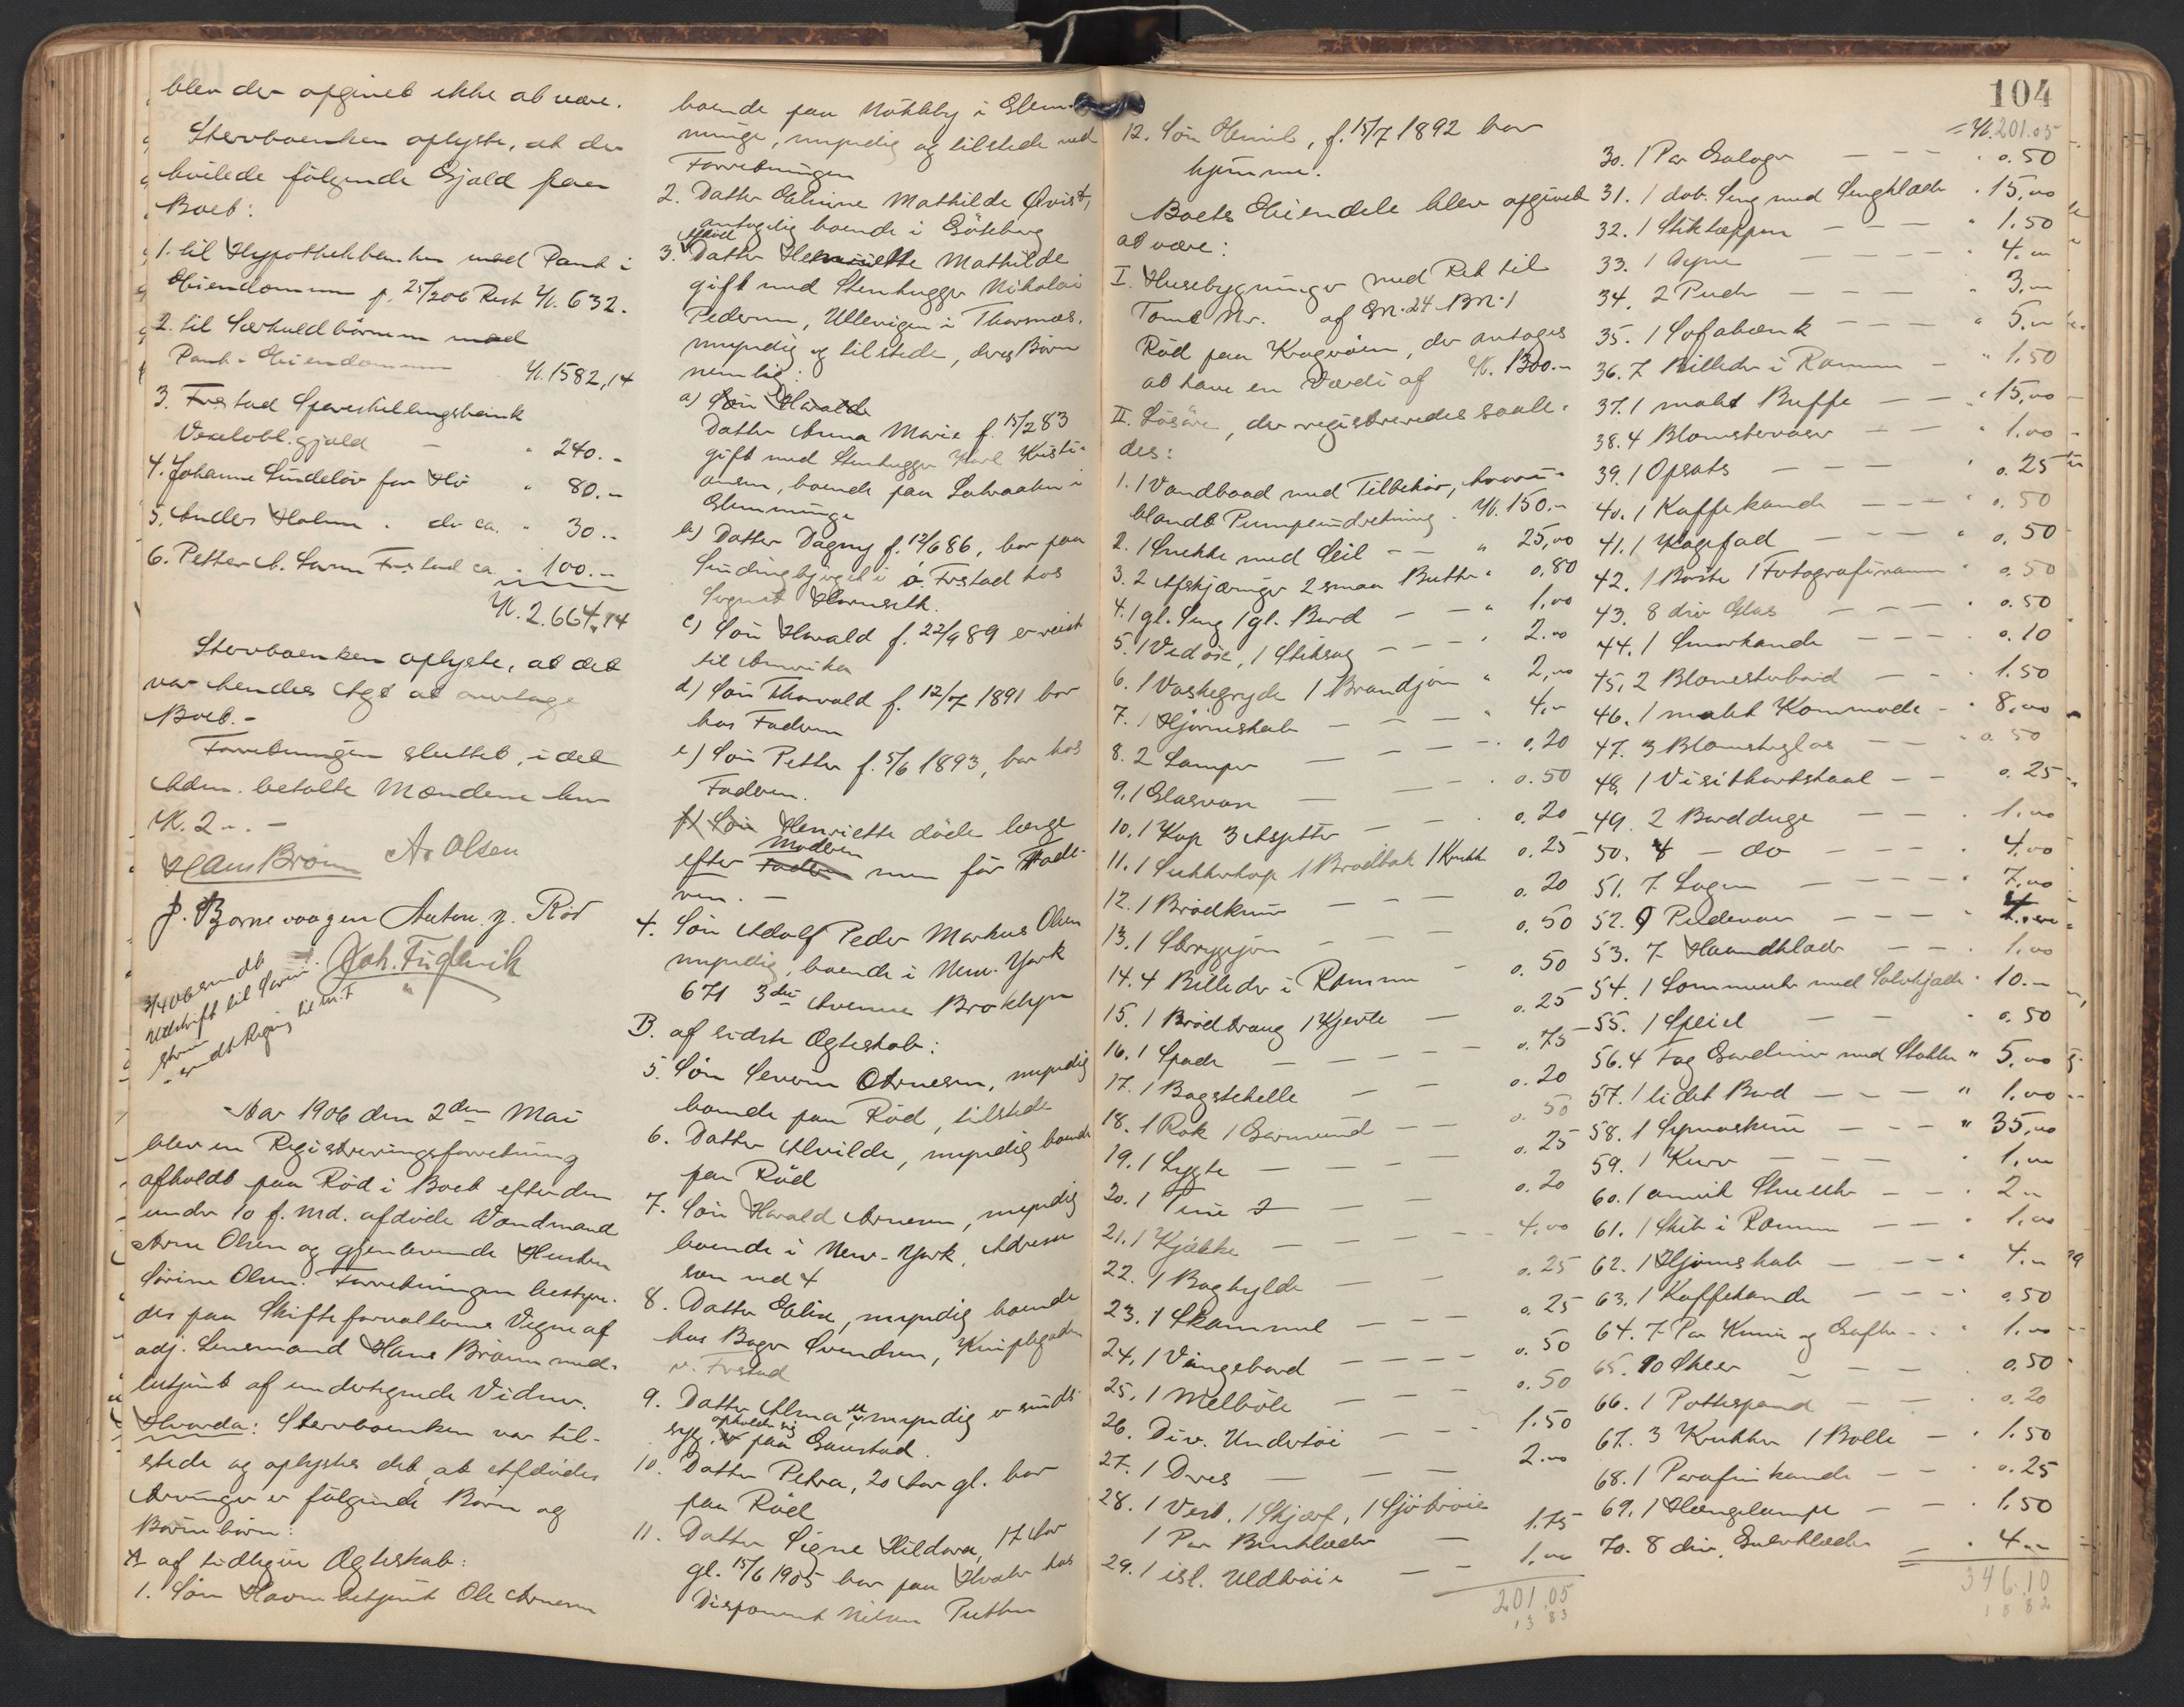 blev der opgivet ikke at være.
Stervboenken oplyste, at der
hvilede følgende Gjæld paa
Boet:
1. til Hypothekbanken med Pant i
Eiendommen p. 25/2 06 Rest Kr. 632.
2. til Særkuldbørnene med
Pant i Eiendommen Kr. 1582,14
3. Frstad Spareskillingsbank
Vexelobl.gjæld – " 240.-
4. Johanne Lindeløv for Hø " 80.-
5. Anders Holm . do ca. " 30.-
6. Petter A. Larsen Frstad ca. " 100.-
Kr. 2.664,14
Stervboenken oplyste, at det
var hendes Agt at overtage
Boet.-
Forretningen sluttet, idet
Adm. betalte Mændene hver
Kr. 2.-.-
Hans Brøun Ar Olsen
J. Bornevaagen Anton J. Rød
Joh. Fuglevik
3/4 06 sendt
Udskrift til Sorin-
skriv.
- sendt Regning til m.F
Aar 1906 den 2den Mai
blev en Registreringsforretning
afholdt paa Rød i Boet efter den
under 10 f. md. afdøde Vandmand
Arne Olsen og gjenlevende Hustru
Sørine Olsen. Forretningen bestyre-
des paa Skifteforvalterens Vegne af
adj. Lensmand Hans Brøun med-
betjent af undertegnede Vidner.
Hvorda: Stervboenken var til-
stede og oplystes det, at Afdødes
Arvinger er følgende Børn og
Børnebørn:
A af tidligere Ægteskab:
1. Søn Havnebetjent Ole Arnesen
boende paa Nøkleby i Glem-
minge, myndig og tilstede ved
Forretningen
2. Datter Eline Mathilde Qvist,
antagelig boende i Gøteborg
3. Datter Henriette Mathilde
gift med Stenhugger Nikolai
Pedersen, Ullevigen i Thorsnæs.
myndig og tilstede, deres Børn
nemlig:
a) Søn Harald
Datter Anna Marie f. 15/2 83
gift med Stenhugger Karl Kristi-
ansen, boende paa Labraaten i
Glemminge
b) Datter Dagny f. 12/6 86, bor paa
Sindingbjerget i Frstad hos
August Hornseth.
c) Søn Harald f. 22/9 89 er reist
til Amerika
d) Søn Thorvald f. 12/7 1891 bor
hos Faderen
e) Søn Petter f. 5/6 1893, bor hos
Faderen.
f) Søn Henriette døde længe
Moderen
efter Faderen men før Fade-
ren. –
4. Søn Adolf Peder Markus Olsen
myndig, boende i New-York
671 3die Avenue Broklyn
B. af sidste Ægteskab:
5. Søn Severin Arnesen, myndig
boende paa Rød, tilstede
6. Datter Alvilde, myndig boende
paa Rød
7. Søn Harald Arnesen, myndig
boende i New-York, Adresse
som ved 4
8. Datter Eline, myndig boende
hos Bager Svendsen, Kniplegaden
v. Frstad
9. Datter Alma umyndig er sinds-
opholder sig
syg, er paa Gaustad.
10. Datter Petra, 20 Aar gl. bor
paa Rød
11. Datter Signe Hildora, 17 Aar
gl. 15/6 1905 bor paa Hvaler hos
Disponent Nilsen Putten
104
12. Søn Emil, f. 15/7 1892 bor
hjemme.
Boets Eiendele blev opgivet
at være:
I. Husebygninger med Ret til
Tomt Nr. af Gn. 24 Bn. 1
Rød paa Kragerøen, der antages
at have en Værdi af Kr. 1300.-
II. Løsøre, der registreredes saale-
des:
1. 1 Vandbaad med Tilbehør, hvori-
blandt Pumpeindretning . Kr. 150.-
2. 1 Snekke med Seil - - " 25,00
3. 2 Afskjæringer 2 smaa Butter " 0,80
4. 1 gl. Seng 1 gl. Bord – – " 1,00
5. 1 Vedøxe, 1 Stiksag – – " 2.00
6. 1 Vaskegryde 1 Brandjern " 2,00
7. 1 Hjørneskab – – – " 4,-
8. 2 Lamper – – – . 0,20
9. 1 Glasvase – – . 0.50
10. 1 Kop 3 Asjetter – – . 0,20
11. 1 Sukkerkop 1 Brødbak 1 Krukke 0,25
12. 1 Brødkurv – – – 0.20
13. 1 Strygejern – – – 0.50
14. 4 Billeder i Ramme – 0.50
15. 1 Brødtraug 1 Kjevle – 0.25
16. 1 Spade – – – – 0.75
17. 1 Bagstehelle – – 0.20
18. 1 Rok 1 Garnvind – – 0.50
19. 1 Lygte – – – – 0.25
20. 1 Tine – – 0.20
21. 1 Kjække – – – – 4.00
22. 1 Boghylde – – 0.25
23. 1 Skammel – – – 0.25
24. 1 Vingebord – – – – 0.50
25. 1 Melbøle – – – 0.50
26. Div. Undertøi – – – 1.50
27. 1 Dres – – – 2.00
28. 1 Vest, 1 Skjerf, 1 Sjøtrøie
1 Par Benklæder – 1.75
29. 1 isl. Uldtrøie – – 1,00
201,05
1383
= Kr. 201.05
30. 1 Par Galoger – – – . 0.50
31. 1 dob. Seng med Sengklæder . 15,00
32. 1 Stiktæppe – – – " 1.50
33. 1 Dyne – – – – 4.00
34. 2 Puder – – – " 3.00
35. 1 Sofabænk – – – " 5.00
36. 7 Billeder i Ramme – " 1.50
37. 1 malet Buffe – – " 15,00
38. 4 Blomstervaser – – " 1.00
39. 1 Opsats – – – " 0.25
40. 1 Kaffekande – – " 0.50
41. 1 Kagefad – – – " 0.50
42. 1 Børste 1 Fotografiramme " 0.50
43. 8 div Glas – – – . 0.50
44. 1 Smørkande – – – . 0.10
45. 2 Blomsterbord – – . 1.50
46. 1 malet Kommode – " 8,00
47. 3 Blomsterglas – – " 0.50
48. 1 Visitkortskaal – – 0.25
49. 2 Bordduge – – . 1.00
50. 4 – do – – – . 4,00
51. 7 Lagen – – – – " 7,00
52. 9 Pudevar – – – – "
53. 7 Haandklæder – – . 1.00
54. 1 Lommeuhr med Sølvkjæde " 10.-
55. 1 Speil – – . 0.50
56. 4 Fag Gardiner med Stokker " 5,00
57. 1 lidet Bord – – – " 1,00
58. 1 Symaskine – – – " 35,00
59. 1 Kurv – – – – " 1,00
60. 1 amrik Stueuhr – – . 2.-
61. 1 Skib i Ramme – – " 1,00
62. 1 Hjørneskab – – – " 4.-
63. 1 Kaffekande – – – . 0.50
64. 7 Par Knive og Gafler - . " 1.00
65. 10 Skeer – – – 0.50
66. 1 Pottespand – – . 0.20
67. 3 Krukker 1 Bolle – " 1.50
68. 1 Parafinkande – – . 0.25
69. 1 Hængelampe – – . 1,50
70. 8 div. Gulvklæder – . 4.-
346.10
1882